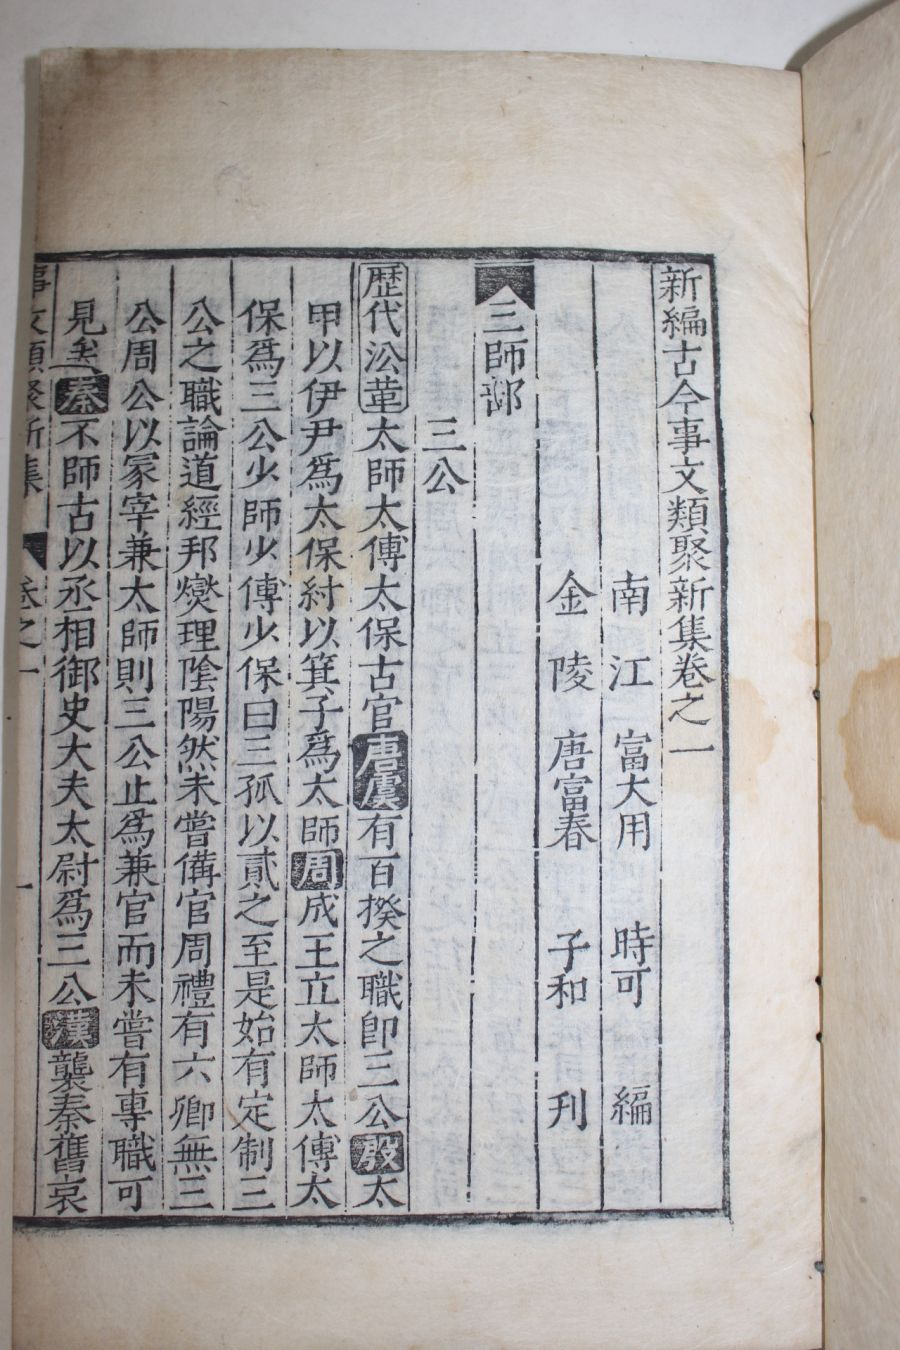 新編古今事文類聚新集卷之一
南江 富大用 時可 編
金陵 唐富春 子和 刋
三師部
三公
歷代㳂革太師太傅太保古官唐虞有百揆之職即三公殷太
甲以伊尹爲太保紂以箕子爲太師周成王立太師太傅太
保爲三公少師少傅少保曰三孤以貳之至是始有定制三
公之職論道經邦燮理陰陽然未嘗備官周禮有六卿無三
公周公以冢宰兼太師則三公止爲兼官而未嘗有專職可
見矣秦不師古以丞相御史大夫太尉爲三公漢襲秦舊哀
事文類聚新集 卷之一 一